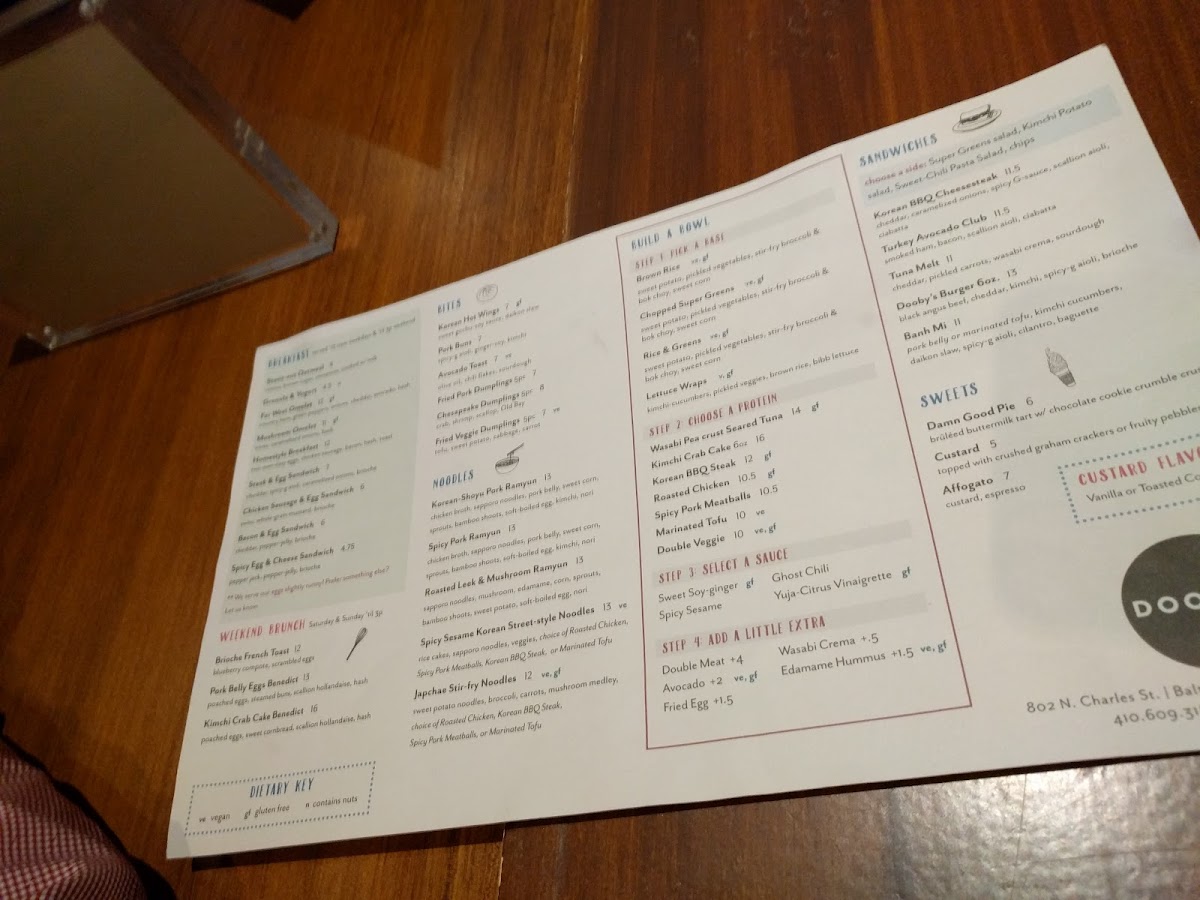 BREAKFAST
Steel-cut Oatmeal 6
Granola & Yogurt 4.5 n
Far West Omelet 12 gf
Mushroom Omelet 11 gf
Homestyle Breakfast 12
Steak & Egg Sandwich 7
cheddar, spicy g aioli, caramelized onions, brioche
Chicken Sausage & Egg Sandwich 6
swiss, whole grain mustard, brioche
Bacon & Egg Sandwich 6
cheddar, pepper jelly, brioche
Spicy Egg & Cheese Sandwich 4.75
pepper jack, pepper jelly, brioche
We serve our eggs slightly runny! Prefer something else?
Let us know
WEEKEND BRUNCH Saturday & Sunday 'til 3p
Brioche French Toast 12
blueberry compote, scrambled eggs
Pork Belly Eggs Benedict 13
poached eggs, steamed buns, scallion hollandaise, hash
Kimchi Crab Cake Benedict 16
poached eggs, sweet cornbread, scallion hollandaise, hash
DIETARY KEY
ve vegan gf gluten free n contains nuts
BITES
Korean Hot Wings 7 gf
Pork Buns 7
spicy g aioli, ginger-soy, kimchi
Avocado Toast 7 ve
olive oil, chili flakes, sourdough
Fried Pork Dumplings 5pc 7
Chesapeake Dumplings 5pc 8
crab, shrimp, scallop, Old Bay
Fried Veggie Dumplings 5pc 7 ve
tofu, sweet potato, cabbage, carrot
NOODLES
Korean-Shoyu Pork Ramyun 13
chicken broth, sapporo noodles, pork belly, sweet corn,
sprouts, bamboo shoots, soft-boiled egg, kimchi, nori
Spicy Pork Ramyun 13
chicken broth, sapporo noodles, pork belly, sweet corn,
sprouts, bamboo shoots, soft-boiled egg, kimchi, nori
Roasted Leek & Mushroom Ramyun 13
sapporo noodles, mushroom, edamame, corn, sprouts,
bamboo shoots, sweet potato, soft-boiled egg, nori
Spicy Sesame Korean Street-style Noodles 13 ve
rice cakes, sapporo noodles, veggies, choice of Roasted Chicken,
Spicy Pork Meatballs, Korean BBQ Steak, or Marinated Tofu
Japchae Stir-fry Noodles 12 ve, gf
sweet potato noodles, broccoli, carrots, mushroom medley,
choice of Roasted Chicken, Korean BBQ Steak,
Spicy Pork Meatballs, or Marinated Tofu
BUILD A BOWL
STEP 1: PICK A BASE
Brown Rice ve, gf
sweet potato, pickled vegetables, stir-fry broccoli &
bok choy, sweet corn
Chopped Super Greens ve, gf
sweet potato, pickled vegetables, stir-fry broccoli &
bok choy, sweet corn
Rice & Greens ve, gf
sweet potato, pickled vegetables, stir-fry broccoli &
bok choy, sweet corn
Lettuce Wraps v, gf
kimchi cucumbers, pickled veggies, brown rice, bibb lettuce
STEP 2: CHOOSE A PROTEIN
Wasabi Pea crust Seared Tuna 14 gf
Kimchi Crab Cake 6oz 16
Korean BBQ Steak 12 gf
Roasted Chicken 10.5 gf
Spicy Pork Meatballs 10.5
Marinated Tofu 10 ve
Double Veggie 10 ve, gf
STEP 3: SELECT A SAUCE
Sweet Soy-ginger gf
Spicy Sesame
Ghost Chili
Yuja-Citrus Vinaigrette gf
STEP 4: ADD A LITTLE EXTRA
Double Meat +4
Avocado +2 ve, gf
Fried Egg +1.5
Wasabi Crema +.5
Edamame Hummus +1.5 ve, gf
SANDWICHES
choose a side: Super Greens salad, Kimchi Potato
salad, Sweet-Chili Pasta Salad, chips
Korean BBQ Cheesesteak 11.5
cheddar, caramelized onions, spicy G-sauce, scallion aioli,
ciabatta
Turkey Avocado Club 11.5
smoked ham, bacon, scallion aioli, ciabatta
Tuna Melt 11
cheddar, pickled carrots, wasabi crema, sourdough
Dooby's Burger 6oz. 13
black angus beef, cheddar, kimchi, spicy-g aioli, brioche
Banh Mi 11
pork belly or marinated tofu, kimchi cucumbers,
daikon slaw, spicy-g aioli, cilantro, baguette
SWEETS
Damn Good Pie 6
brûléed buttermilk tart w/ chocolate cookie crumble crus
Custard 5
topped with crushed graham crackers or fruity pebble
Affogato 7
custard, espresso
CUSTARD FLAVO
Vanilla or Toasted Co
DOO
802 N. Charles St. | Bal
410.609.31